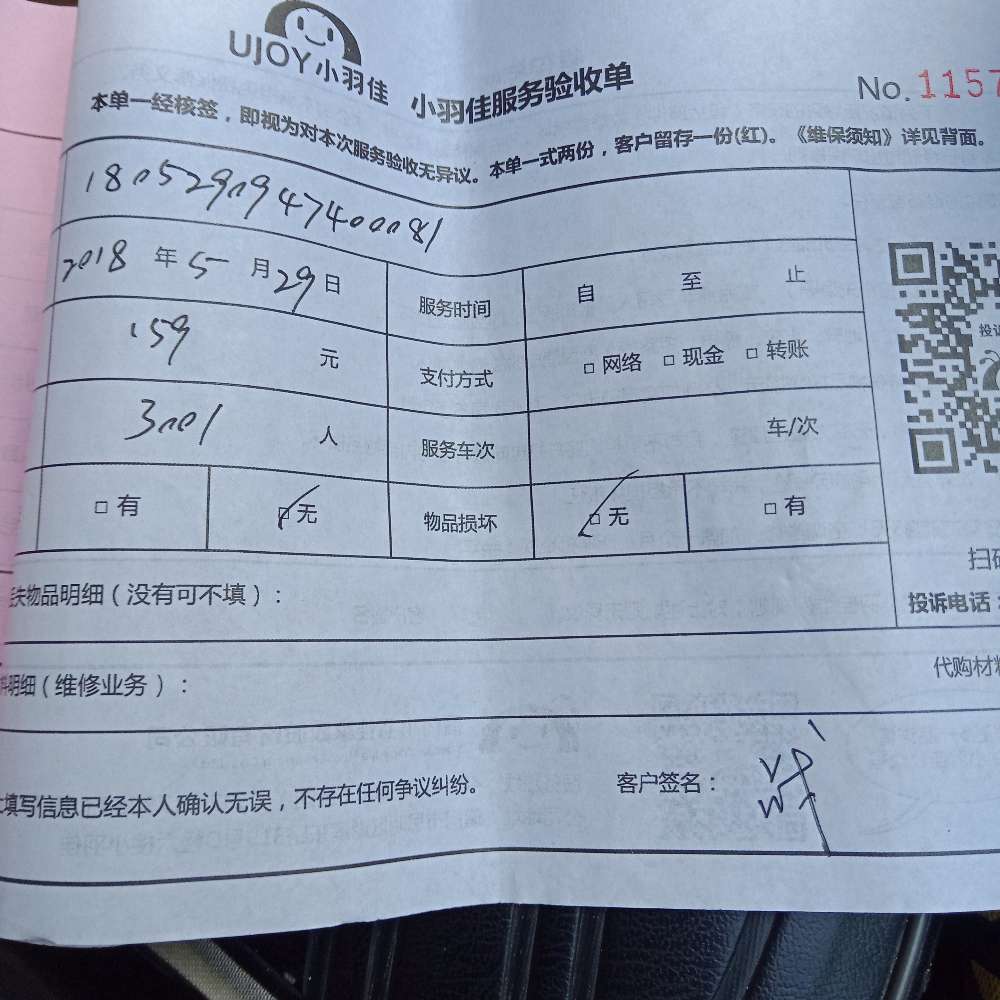 UJOY小羽佳
小羽佳服务验收单
No.1157
本单一经核签，即视为对本次服务验收无异议。本单一式两份，客户留存一份(红)。《维保须知》详见背面。
180529094740081
2018 年 5 月 29 日 服务时间 自 至 止
159 元 支付方式 □ 网络 □ 现金 □ 转账
人 服务车次 车/次
□ 有 □ 无 物品损坏 □ 无 □ 有
失物品明细（没有可不填）：
投诉电话：
明细（维修业务）：
代购材料
填写信息已经本人确认无误，不存在任何争议纠纷。
客户签名：